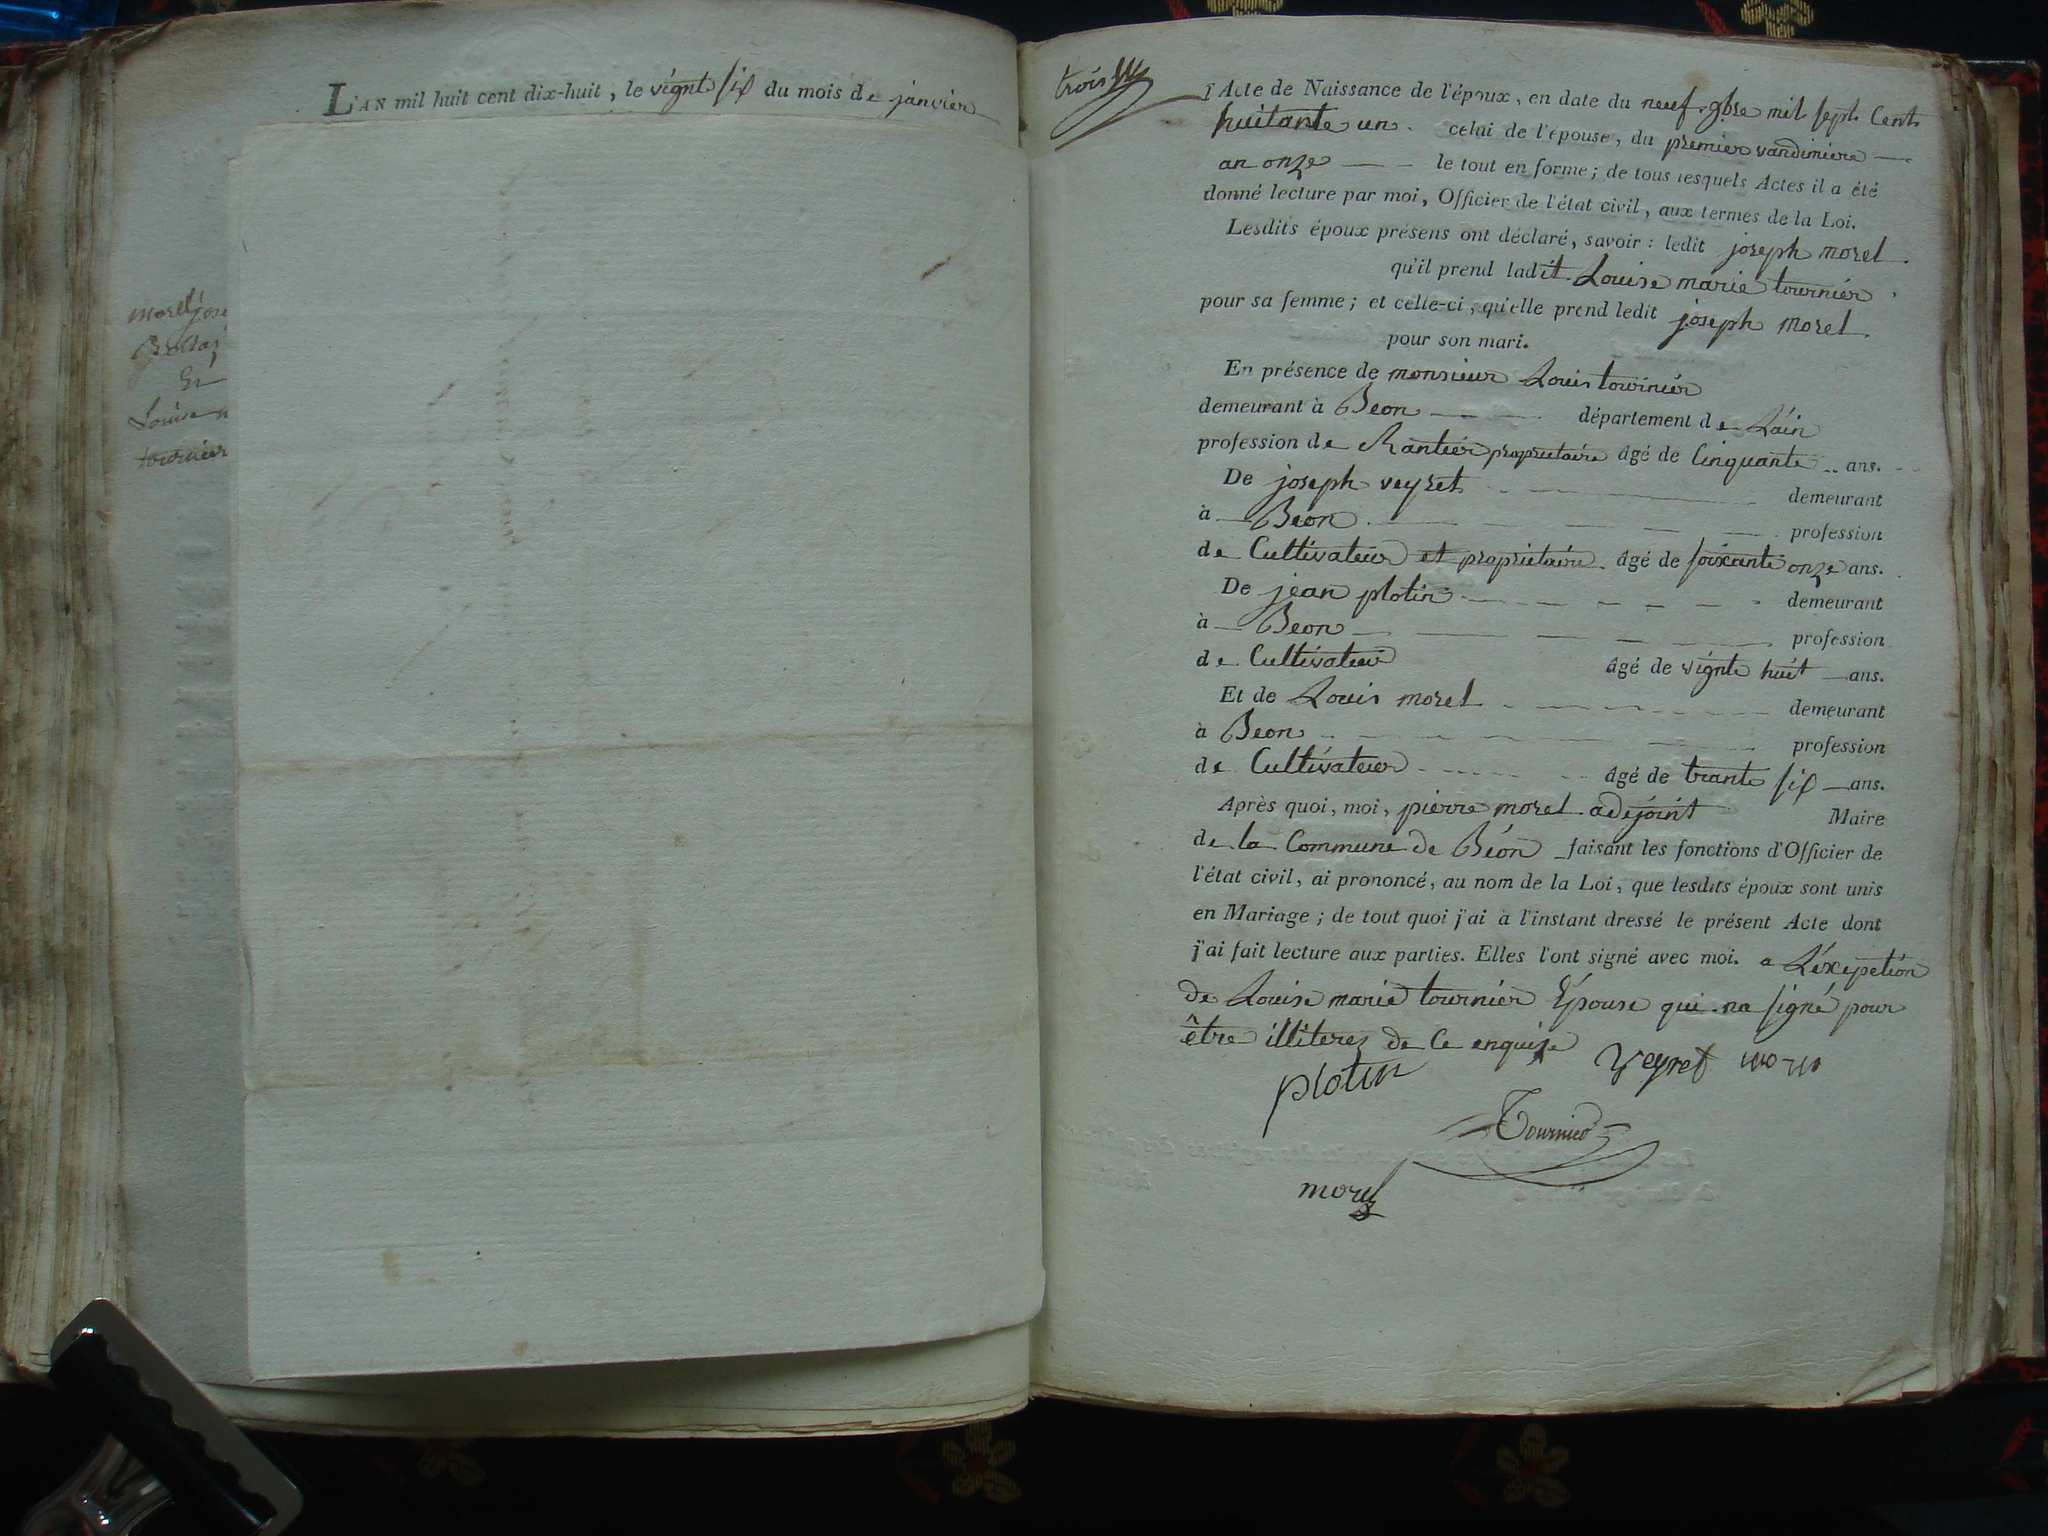 L'AN mil huit cent dix-huit, le vignt six du mois de janvier
morel
Et
Louise
tournier
trois
l'Acte de Naissance de l'époux, en date du neuf gbre mil sept Cent
huitante un. celui de l'épouse, du premier vandimiere
an onze le tout en forme; de tous lesquels Actes il a été
donné lecture par moi, Officier de l'état civil, aux termes de la Loi.
Lesdits époux présens ont déclaré, savoir : ledit joseph morel
qu'il prend ladit Louise marie tournier
pour sa femme; et celle-ci, qu'elle prend ledit joseph morel
pour son mari.
En présence de monsieur Louis tournier
demeurant à Beon département de Lain
profession de Rantier propriétaire âgé de Cinquante ans.
De joseph veyret demeurant
à Beon profession
de Cultivateur et propriétaire. âgé de soixante onze ans.
De jean plotin demeurant
à Beon profession
de Cultivateur âgé de vignte huit ans.
Et de Louis morel demeurant
à Beon profession
de Cultivateur âgé de trante six ans.
Après quoi, moi, pierre morel adejoint Maire
de la Commune de Béon faisant les fonctions d'Officier de
l'état civil, ai prononcé, au nom de la Loi, que lesdits époux sont unis
en Mariage; de tout quoi j'ai à l'instant dressé le présent Acte dont
j'ai fait lecture aux parties. Elles l'ont signé avec moi. a L'éxepetion
de Louise marie tournier Épouse qui na signé pour
être illiterez de Ce enquise
plotin Veyret
Tournier
morel